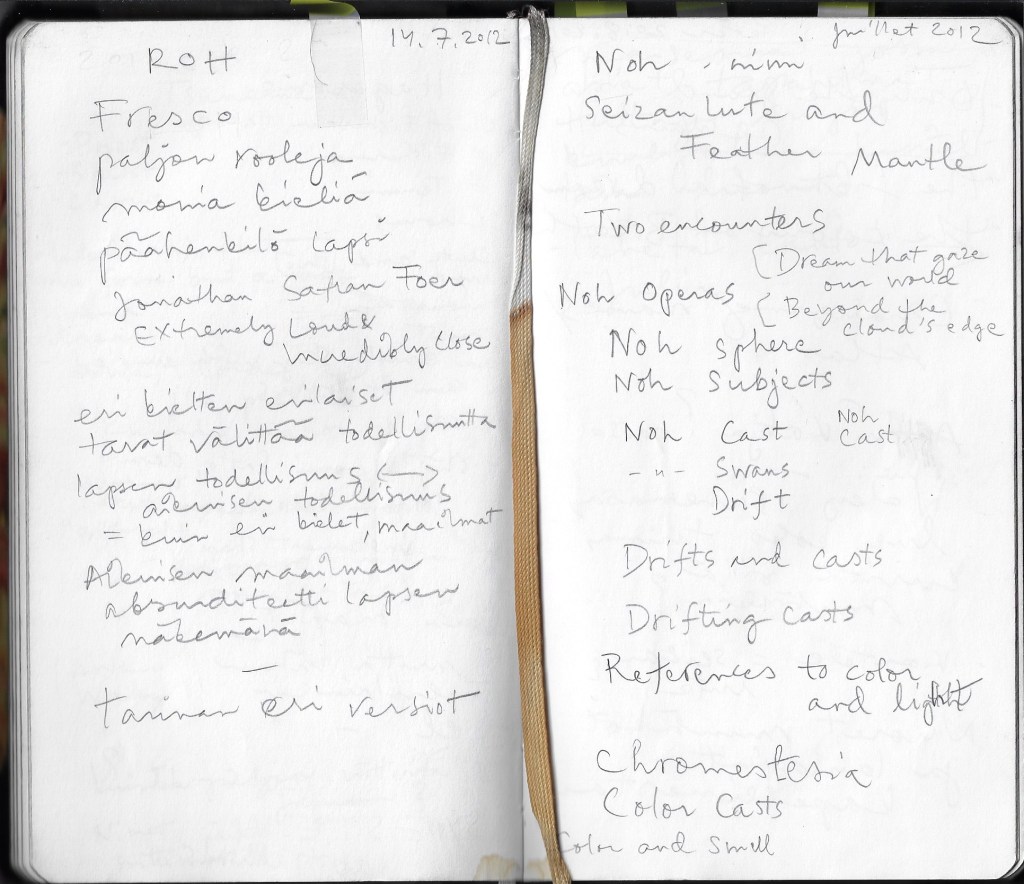 14.7.2012
ROH
Fresco
paljon rooleja
monia kieliä
päähenkilö lapsi
Jonathan Safran Foer
Extremely Loud &
Incredibly Close
eri kielten erilaiset
tavat välittää todellisuutta
lapsen todellisuus <—>
aikuisen todellisuus
= kuin eri kielet, maailmat
Aikuisen maailman
absurditeetti lapsen
näkemänä
—
tarinan eri versiot
juillet 2012
Noh - nimi
Seizan lute and
Feather Mantle
Two encounters
[Dream that gaze
our world
Noh Operas
[Beyond the
cloud's edge
Noh sphere
Noh Subjects
Noh Cast
Noh
Cast
-"- Swans
Drift
Drifts and casts
Drifting casts
References to color
and light
Chromestesia
Color Casts
Color and Smell